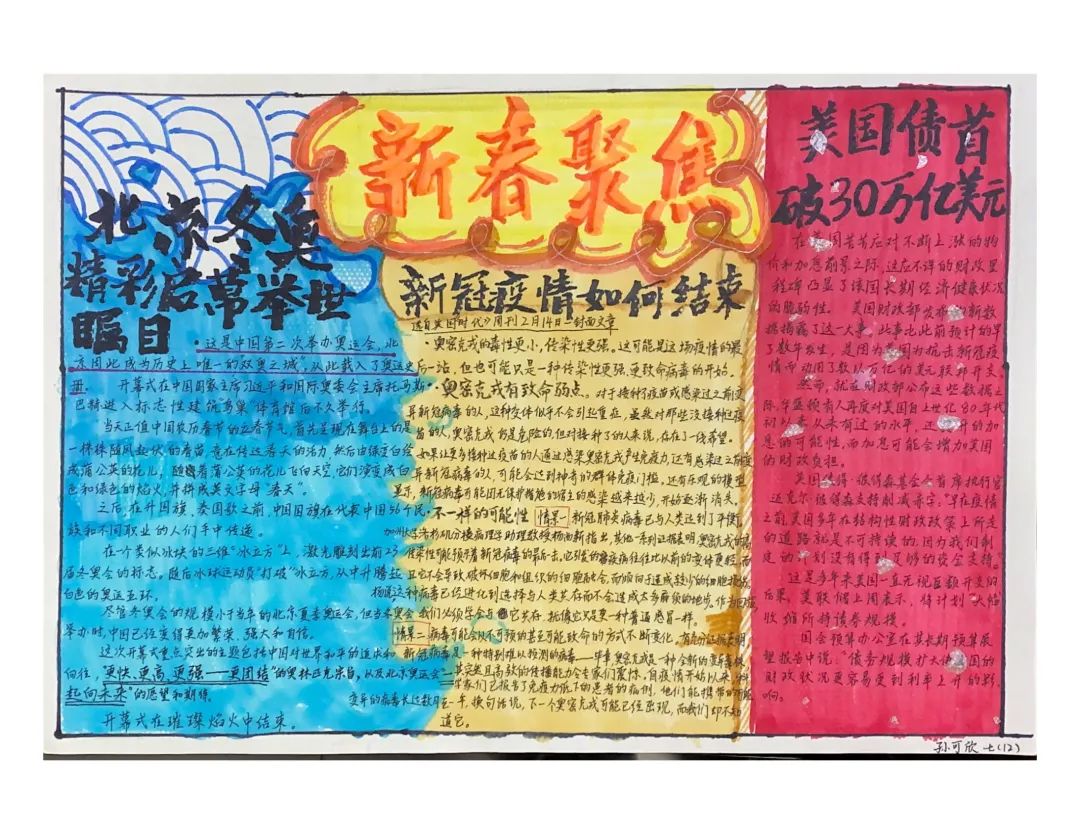 新春聚焦
北京冬奥
精彩启幕举世
瞩目
·这是中国第二次举办奥运会,北
京因此成为历史上唯一的“双奥之城”,从此载入了奥运史
册.
开幕式在中国国家主席习近平和国际奥委会主席托马斯·
巴赫进入标志性建筑“鸟巢”体育馆后不久举行。
当天正值中国农历春节的立春节气,首先呈现在舞台上的是
一株株随风起伏的春苗,意在传达春天的活力,然后由绿变白形
成蒲公英的花儿,随着蒲公英的花儿飞向天空,它们演变成白
色和绿色的焰火,并拼成英文字母“春天”。
之后,在升国旗、奏国歌之前,中国国旗在代表中国56个民
族和不同职业的人们手中传递。
在一个类似冰块的三维“冰立方”上,激光雕刻出前23
届冬奥会的标志。随后冰球运动员“打破”冰立方,从中升腾起
白色的奥运五环。
尽管冬奥会的规模小于当年的北京夏季奥运会,但当来
举办时,中国已经变得更加繁荣、强大和自信。
这次开幕式重点突出的主题包括中国对世界和平的追求和
向往,“更快、更高、更强——更团结”的奥林匹克宗旨,以及北京奥运会“一
起向未来”的愿望和期待。
开幕式在璀璨焰火中结束。
新冠疫情如何结束
选自美国《时代》周刊2月14日一封面文章
·奥密克戎的毒性更小,传染性更强。这可能是这场疫情的最
后一站,但也可能只是一种传染性更强、更致命病毒的开始。
·奥密克戎有致命弱点。对于接种疫苗或感染过之前变
异新冠病毒的人,这种变体似乎不会引起重症,虽然对那些没接种过疫
苗的人,奥密克戎仍是危险的,但对接种了的人来说,存在了一线希望。
如果让更多接种过疫苗的人通过感染奥密克戎产生免疫力,还有感染过之前变
异新冠病毒的人,可能会达到神奇的群体免疫门槛,还有乐观的模型
显示,新冠病毒可能因无保护措施的宿主的感染越来越少,开始逐渐消失。
·不一样的可能性 情景一 新冠肺炎病毒已与人类达到了平衡,
加州大学洛杉矶分校病理学助理教授杨西新指出,其他一系列证据表明,奥密克戎的高
传染性可能预停着新冠病毒的最后一击,它引发的重症病往往比以前的变体更轻,而
且它不会导致破坏细胞和组织的细胞融合,而倾向于造成较少的细胞损伤,
这种病毒已经进化到选择与人类共存而不会造成太多麻烦的地步。作为回应,
我们必须学会与它共存,把像它只是一种普通感冒一样。
情景二 病毒可能会以不可预的甚至可能致命的方式不断变化,
新冠病毒是一种特别难以预测的病毒——毕竟,奥密克戎是一种全新的变异毒株,
其突变且高效的传播能力令专家们震惊,自疫情开始以来,科
学家们已报告了免疫力低下的患者的病例,他们能携带
变异的病毒长达数月至一年,换句话说,下一个奥密克戎可能已经出现,而我们却不知
道它。
美国债首
破30万亿美元
在美国苦苦应对不断上涨的物
价和加息前景之际,这应不详的财政里
程碑凸显了该国长期经济健康状况
的脆弱性。美国财政部发布的新数
据揭露了这一大事,此事比此前预计的早
了数年发生,是因为美国为抗击新冠疫
情而动用了数以万亿的美元联邦开支
然而,就在财政部公布这些数据之
际,华盛顿有人再度对美国自上世纪80年代
以来从未有过的水平,还上升的加
息的可能性,而加息可能会增加美国
的财政负担。
美国彼得·彼得森基金会首席执行官
迈克尔·彼得森支持削减赤字:“早在疫情
之前,美国多年在结构性财政政策上所走
的道路就是不可持续的,因为我们制
定的计划没有得到足够的资金支持。”
这是多年来美国一直无视巨额开支的
后果,美联储上周表示,将计划大幅
收缩所持债券规模。
国会预算办公室在其长期预算展
望报告中说:“债务规模扩大使美国的
财政状况更容易受到利率上升的影
响。
孙可欣 七(12)